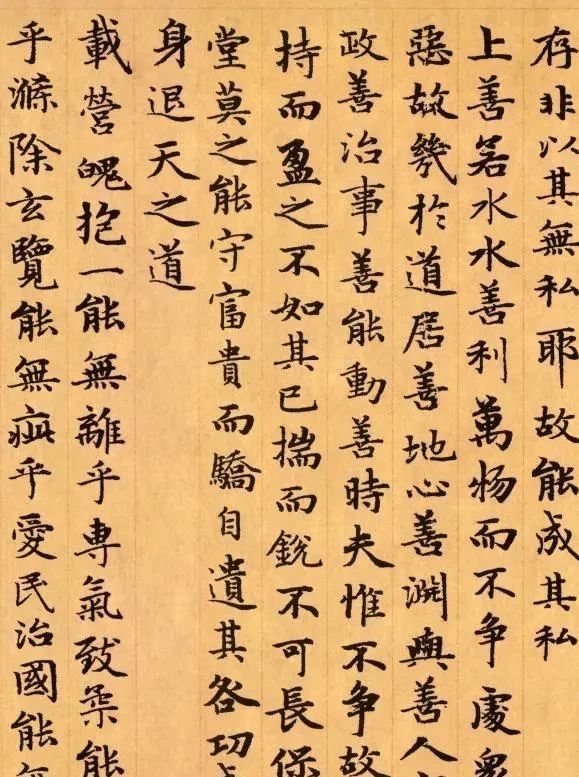 存非以其無私耶故能成其私
上善若水水善利萬物而不争處衆
惡故幾於道居善地心善淵與善人
政善治事善能動善時夫惟不争故
持而盈之不如其已揣而銳不可長保
堂莫之能守富貴而驕自遺其咎功
身退天之道
載營魄抱一能無離乎専氣致柔能
乎滌除玄覽能無疵乎愛民治國能無